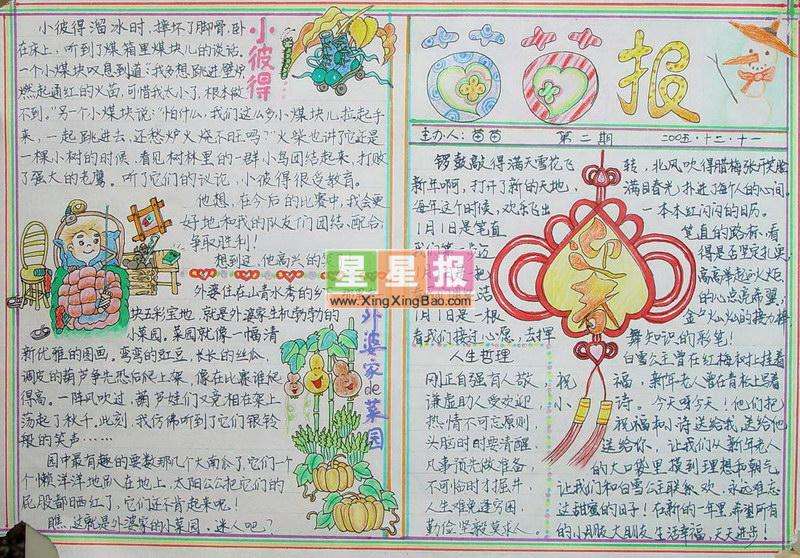 小彼得
小彼得溜冰时，摔坏了脚骨，卧
在床上，听到了煤箱里煤块儿的谈话。
一个小煤块叹息到道：我多想跳进壁炉
燃起通红的火苗，可惜我太小了，根本做
不到。”另一个小煤块说“怕什么，我们这么多小煤块儿拉起手
来，一起跳进去，还愁炉火烧不旺吗？”火柴也讲了它还是
一棵小树的时候，看见树林里的一群小鸟团结起来，打败
了强大的老鹰。听了它们的议论，小彼得很受教育。
他想，在今后的比赛中，我会更
好地和我的队友们团结、配合，
争取胜利！
想到这，他高兴的
外婆家de菜园
外婆住在山青水秀的乡
块五彩宝地，就是外婆家生机勃勃的
小菜园。菜园就像一幅清
新优雅的图画，弯弯的豇豆，长长的丝瓜，
调皮的葫芦争先恐后爬上架，像在比赛谁爬
得高。一阵风吹过，葫芦娃们又竞相在架上
荡起了秋千。此刻，我仿佛听到了它们银铃
般的笑声……
园中最有趣的要数那几个大南瓜了，它们一个
个懒洋洋地趴在地上，太阳公公把它们的
屁股都晒红了，它们还不肯起来呢！
瞧，这就是外婆家的小菜园，迷人吧？
星星报
www.XingXingBao.com
报
主办人：苗苗 第二期 2005·十二·十一
锣鼓敲得满天雪花飞
新年啊，打开了新的天地，
每年这个时候，欢乐飞出
1月1是笔直
1月1是一根
看我们接过心愿，去挥
转，北风吹得腊梅张开笑脸
满目春光，扑进了每个人的心间。
一本本红闪闪的日历。
笔直的路标，看
得是否坚定扎实
高高举起火炬，
的心点亮希望，
金夕灿灿的接力棒
舞知识的彩笔！
迎春
人生哲理
刚正自强有人敬，
谦虚助人受欢迎，
热情不可忘原则
头脑时时要清醒
凡事预先做准备，
不可临时才掘井，
人生难免逢穷困
白雪公主曾在红梅树上挂着
祝福，新年老人曾在青松上写着
小诗。今天呀今天！他们把
祝福和小诗送给我，送给他
送给你，让我们从新年老人
的大口袋里摸到理想和朝气
让我们和白雪公主联象欢，永远难忘
这甜蜜的日子！在新的一年里，希望所有
的小朋友大朋友生活幸福，天天进步！